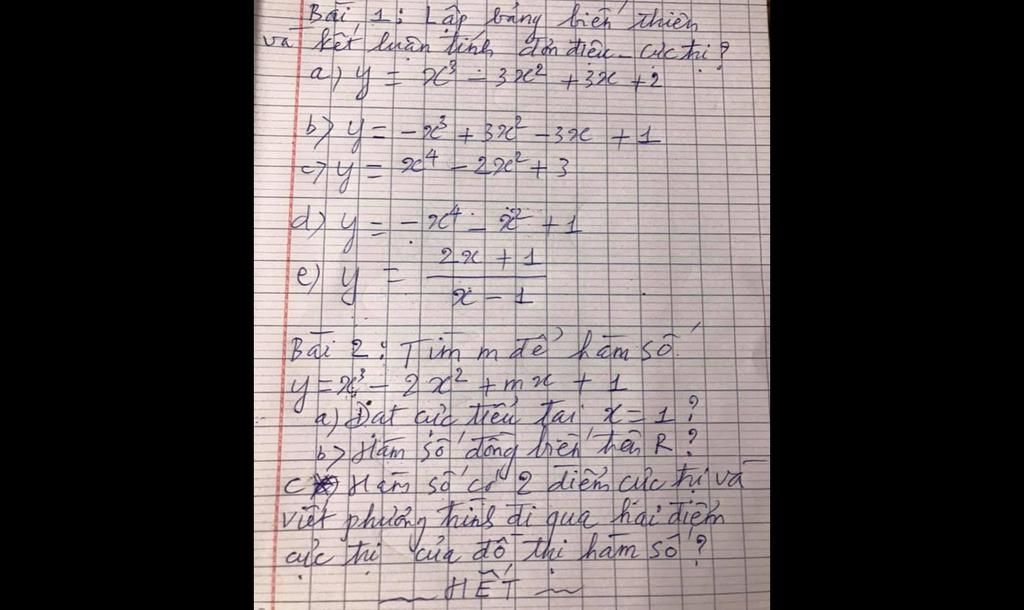 Bài 1: Lập bảng biến thiên
và kết luận tính đơn điệu - cực trị?
a) y = x³ - 3x² + 3x + 2
b) y = -x³ + 3x² - 3x + 1
c) y = x⁴ - 2x² + 3
d) y = -x⁴ - x² + 1
e) y = (2x + 1)/(x - 1)
Bài 2: Tìm m để hàm số
y = x³ - 2x² + mx + 1
a) Đạt cực tiểu tại x = 1?
b) Hàm số đồng biến trên R?
c) Hàm số có 2 điểm cực trị và
viết phương trình đi qua hai điểm
cực trị của đồ thị hàm số?
HẾT